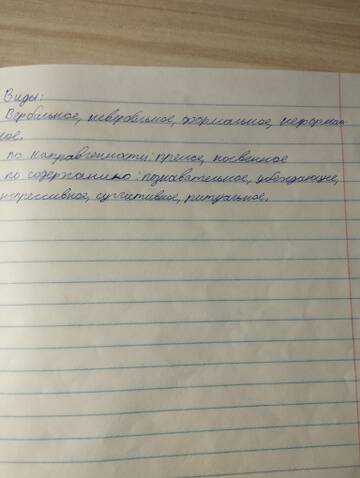 Виды:
Вербальное, невербальное, формальное, неформаль
ное.
по направленности: прямое, косвенное
по содержанию: познавательное, убеждающее,
экспрессивное, суггестивное, ритуальное.